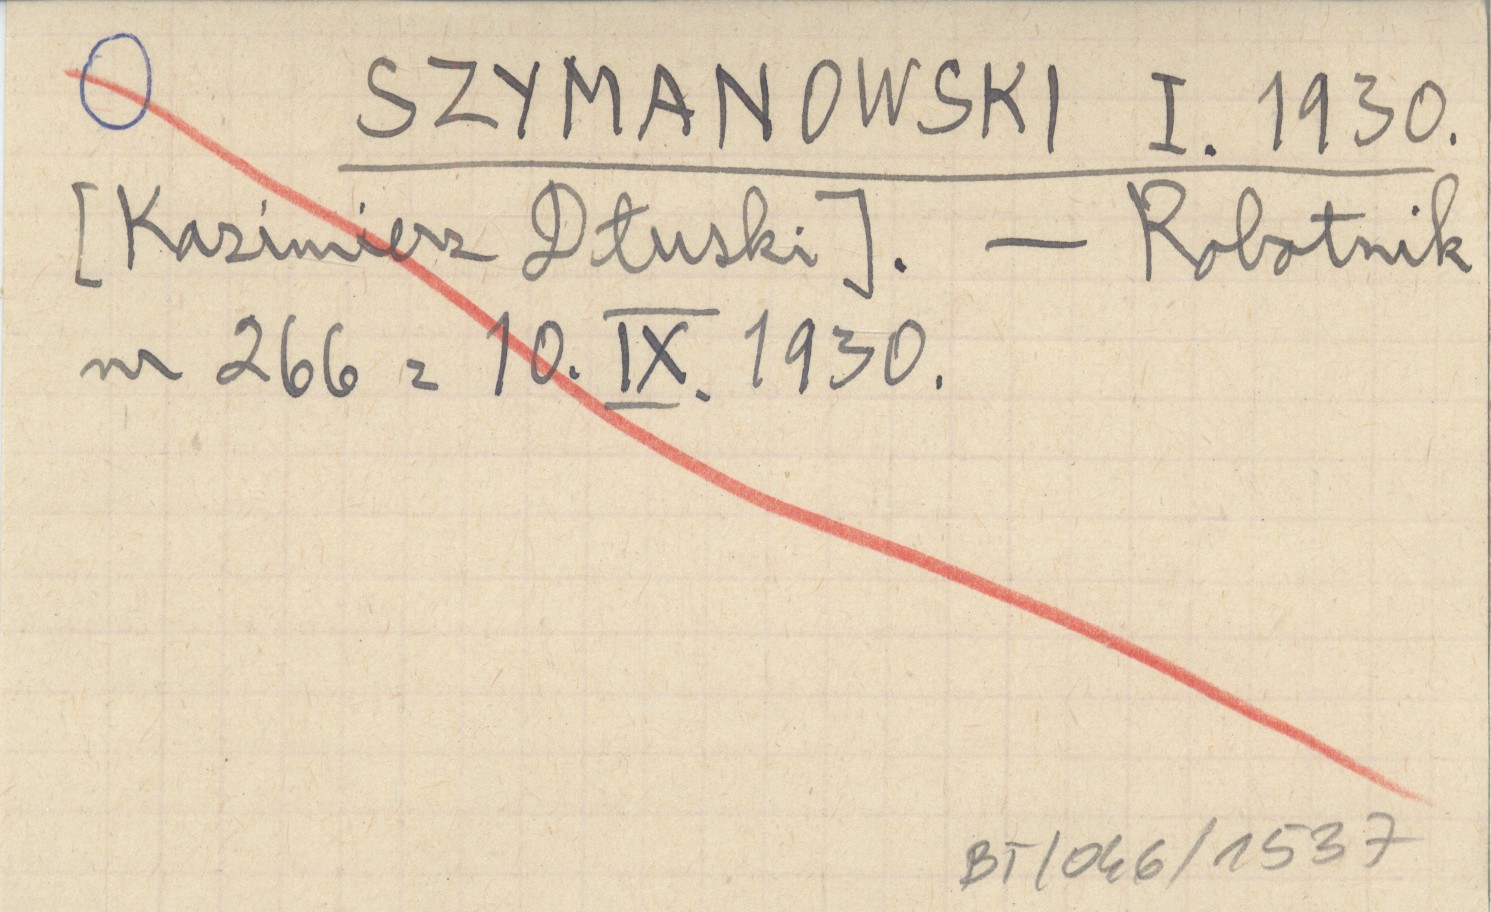 SZYMANOWSKI I. 1930.
[Kazimierz Dłuski]. — Robotnik
nr 266 z 10. IX. 1930.
BT/046/1537